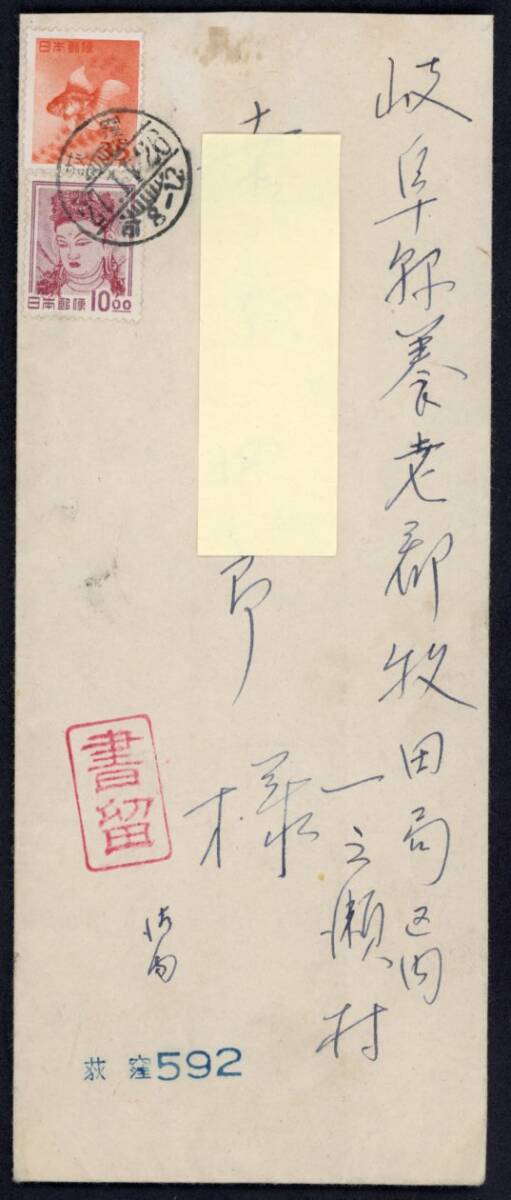 岐阜縣養老郡牧田局区内
一之瀬村
郎様
日本郵便
日本郵便 10.00
書留
荻窪592